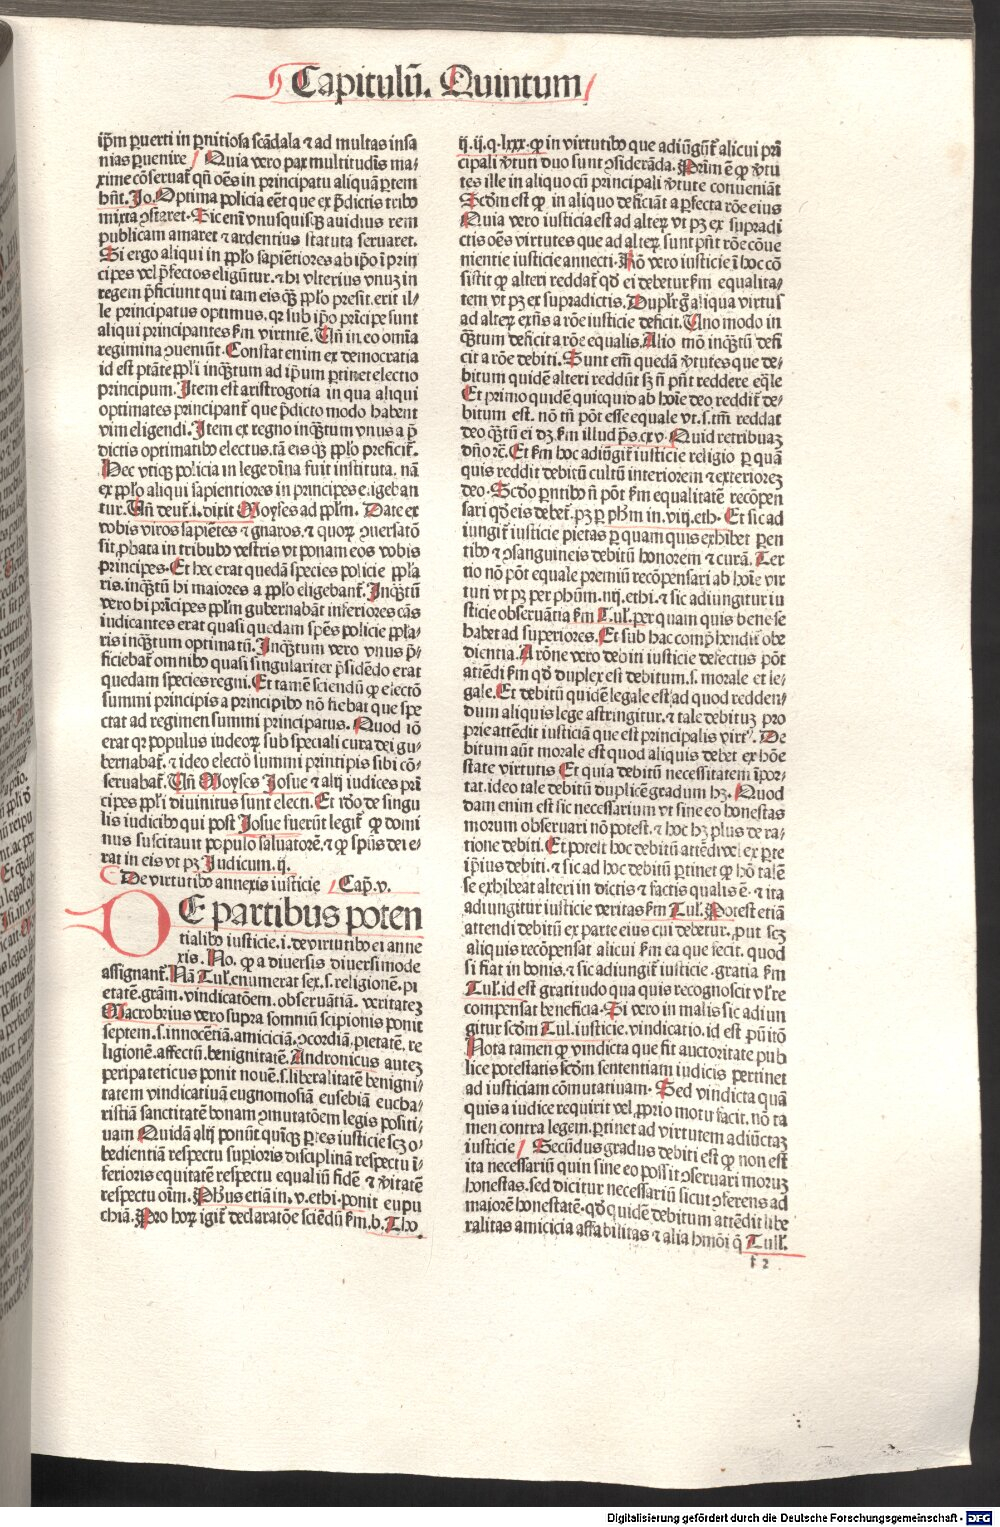 Capitulū. Quintum
ip̄m ꝑuerti in ꝑnitiosa scādala ⁊ ad multas insa
nias ꝑuenire Quia vero pax multitudīs ma-
xime cōseruat̉ qn̄ oēs in principatu aliquā ꝑtem
hn̄t. Jo. Optima policia eēt que ex p̄dictis trib⁹
mixta ꝯstaret. Sic eni vnusquisqꝫ auidius rem
publicam amaret ⁊ ardentius statuta seruaret.
Si ergo aliqui in ꝓpl̓o sapiētiores ab ip̄o ī prin
cipes vel p̄fectos eligūtur. ⁊ hi vlterius vnuꝫ in
regem p̄ficiunt qui tam eis qꝫ ꝓpl̓o presit. erit il-
le principatus optimus. qꝛ sub ip̄o prīcipe sunt
aliqui principantes ẜm virtutē. Un̄ in eo om̄ia
regimina ꝯueniūt. Constat enim ex democratia
id est ptāte ꝓpl̓i inqꝫtum ad ip̄um ꝑtinet electio
principum. Item est aristrogotia in qua aliqui
optimates principant̉ que p̄dicto modo habent
vim eligendi. Item ex regno inqꝫtum vnus a p̄
dictis optimatib⁹ electus. tā eis qꝫ ꝓpl̓o preficit̉.
Hec vtiqꝫ policia in lege diuīa fuit instituta. nā
ex ꝓpl̓o aliqui sapientiores in principes eligeban
tur. Un̄ deut̓. i. dixit Moyses ad ꝓpl̓m. Date ex
vobis viros sapiētes ⁊ gnaros. ⁊ quoꝝ ꝯuersatō
sit ꝓbata in tribub⁹ vestris vt ponam eos vobis
principes. Et hec erat quedā species policie ꝓpl̓a
ris. inqꝫtū hi maiores a ꝓpl̓o eligebant̉. Inqꝫtū
vero hi prīcipes ꝓpl̓m gubernabāt inferiores cās
iudicantes erat quasi quedam spēs policie ꝓpl̓a-
ris inqꝫtum optimatū. Inqꝫtum vero vnus p̄-
ficiebat̉ omnib⁹ quasi singulariter p̄sidēdo erat
quedam species regni. Et tamē sciendū ꝙ electō
summi principis a principib⁹ nō fiebat que spe
ctat ad regimen summi principatus. Quod iō
erat qꝛ populus iudeoꝝ sub speciali cura dei gu-
bernabat̉. ⁊ ideo electō summi principis sibi cō-
seruabat̉. Un̄ Moyses Josue ⁊ alij iudices prī
cipes ꝓpl̓i diuinitus sunt electi. Et id̓o de singu
lis iudicib⁹ qui post Josue fuerūt legit̉ ꝙ domi
nus suscitauit populo saluatorē. ⁊ ꝙ spūs dei e-
rat in eis vt pꝫ Judicum. ij.
De virtutib⁹ annexis iusticie Cap̄. v.
DE partibus poten
tialib⁹ iusticie. i. de virtutib⁹ ei anne
xis. No. ꝙ a diuersis diuersimode
assignant̉. Nā Tul̓. enumerat sex. s. religionē. pi
etatē. grām. vindicatōem. obseruātiā. veritateꝫ
Macrobrius vero supra somniū scipionis ponit
septem. s. innocētiā. amiciciā. ꝯcordiā. pietatē. re
ligionē. affectū. benignitatē. Andronicus auteꝫ
peripateticus ponit nouē. s. liberalitatē benigni-
tatem vindicatiuā eugnomosiā eusebiā eucha-
ristiā sanctitatē bonam ꝯmutatōem legis positi-
uam Quidā alij ponūt quīqꝫ ꝑtes iusticie scꝫ o-
bedientiā respectu suꝑioris disciplinā respectu ī-
ferioris equitatē respectu equaliū fidē ⁊ v̓itatē
respectu oīm. Ph̓us etiā in. v. ethi. ponit eupu
chiā. Pro hoꝝ igit̉ declaratōe sciēdū ẜm. b. Tho.
ij. ij. q. lxx. ꝙ in virtutib⁹ que adiūgūt̉ alicui pri
cipali v̓tuti duo sunt ꝯsiderāda. Primū ē ꝙ v̓tu
tes ille in aliquo cū principali v̓tute conueniāt
Scd̓m est ꝙ in aliquo deficiāt a ꝑfecta rōe eius
Quia vero iusticia est ad alteꝝ vt pꝫ ex supradi
ctis oēs virtutes que ad alteꝝ sunt pn̄t rōe cōue
nientie iusticie annecti. Rō vero iusticie ī hoc cō
sistit ꝙ alteri reddat̉ qd̓ ei debetur ẜm equalita-
tem vt pꝫ ex supradictis. Dupl̓r g̊ aliqua virtus
ad alteꝝ exn̄s a rōe iusticie deficit. Uno modo in
qꝫtum deficit a rōe equalis. Alio mō inqꝫtū defi
cit a rōe debiti. Sunt em̄ quedā v̓tutes que de-
bitum quidē alteri reddūt sꝫ n̄ pn̄t reddere eq̄le
Et primo quidē quicquid ab hoīe deo reddit̉ de-
bitum est. nō tn̄ pōt esse equale vt. s. tm̄ reddat
deo qꝫtū ei dꝫ. ẜm illud ps̄. cxv. Quid retribuaꝫ
dn̄o rc̄. Et ẜm hoc adiūgit̉ iusticie religio ꝑ quā
quis reddit debitū cultū interiorem ⁊ exterioreꝫ
deo. Scd̓o ꝑntib⁹ n̄ pōt ẜm equalitatē recōpen
sari qd̓ eis debet̉. pꝫ ꝑ ph̓m in. viij. eth. Et sic ad
iungit̉ iusticie pietas ꝑ quam quis exhibet ꝑen
tib⁹ ⁊ ꝯsanguineis debitū honorem ⁊ curā. Ter
tio nō pōt equale premiū recōpensari ab hoīe vir
tuti vt pꝫ per ph̓um. iiij. ethi. ⁊ sic adiungitur iu
sticie obseruātia ẜm Tul̓. per quam quis bene se
habet ad superiores. Et sub hac comp̄hendit̉ obe
dientia. A rōne vero debiti iusticie defectus pōt
attēdi ẜm qd̓ duplex est debitum. s. morale et le-
gale. Et debitū quidē legale est ad quod redden-
dum aliquis lege astringitur. ⁊ tale debituꝫ pro
prie attēdit iusticiā que est principalis virt⁹. De
bitum aūt morale est quod aliquis debet ex hōe
state virtutis Et quia debitū necessitatem īpor-
tat. ideo tale debitū duplicē gradum hꝫ. Quod
dam enim est sic necessarium vt sine eo honestas
morum obseruari nō potest. ⁊ hoc hꝫ plus de ra-
tione debiti. Et potest hoc debitū attēdi vel ex ꝑte
ip̄ius debiti. ⁊ sic ad hoc debitū ꝑtinet ꝙ hō talē
se exhibeat alteri in dictis ⁊ factis qualis ē. ⁊ ita
adiungitur iusticie veritas ẜm Tul̓. Potest etiā
attendi debitū ex parte eius cui debetur. ꝓut scꝫ
aliquis recōpensat alicui ẜm ea que fecit. quod
si fiat in bonis. ⁊ sic adiungit̉ iusticie. gratia ẜm
Tul̓. id est gratitudo qua quis recognoscit vl̓ re
compensat beneficia. Si vero in malis sic adiun
gitur scd̓m Tul. iusticie. vindicatio. id est pūitō
Nota tamen ꝙ vindicta que fit auctoritate pub
lice potestatis scd̓m sententiam iudicis pertinet
ad iusticiam cōmutatiuam. Sed vindicta quā
quis a iudice requirit vel ꝓprio motu facit. nō ta
men contra legem. ꝑtinet ad virtutem adiūctaꝫ
iusticie Secūdus gradus debiti est ꝙ non est
ita necessariū quin sine eo possit ꝯseruari moruꝫ
honestas. sed dicitur necessariū sicut ꝯferens ad
maiorē honestatē. qd̓ quidē debitum attēdit libe
ralitas amicicia affabilitas ⁊ alia hmōi q̄ Tull̓.
f 2
Digitalisierung gefördert durch die Deutsche Forschungsgemeinschaft - DFG